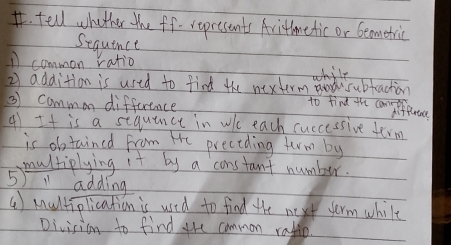 I. Tell whether the ff. represents Arithmetic or Geometric
Sequence
1) common ratio
2) addition is used to find the next term while subtraction
to find the common difference
3) common difference
4) It is a sequence in w/c each successive term
is obtained from the preceding term by
multiplying it by a constant number.
5) " adding
6) Multiplication is used to find the next term while
Division to find the common ratio.